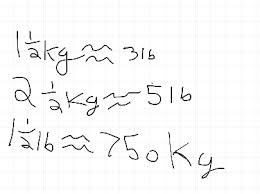 1 1/2 kg ≈ 3 lb
2 1/2 kg ≈ 5 lb
1 1/2 lb ≈ 750 Kg